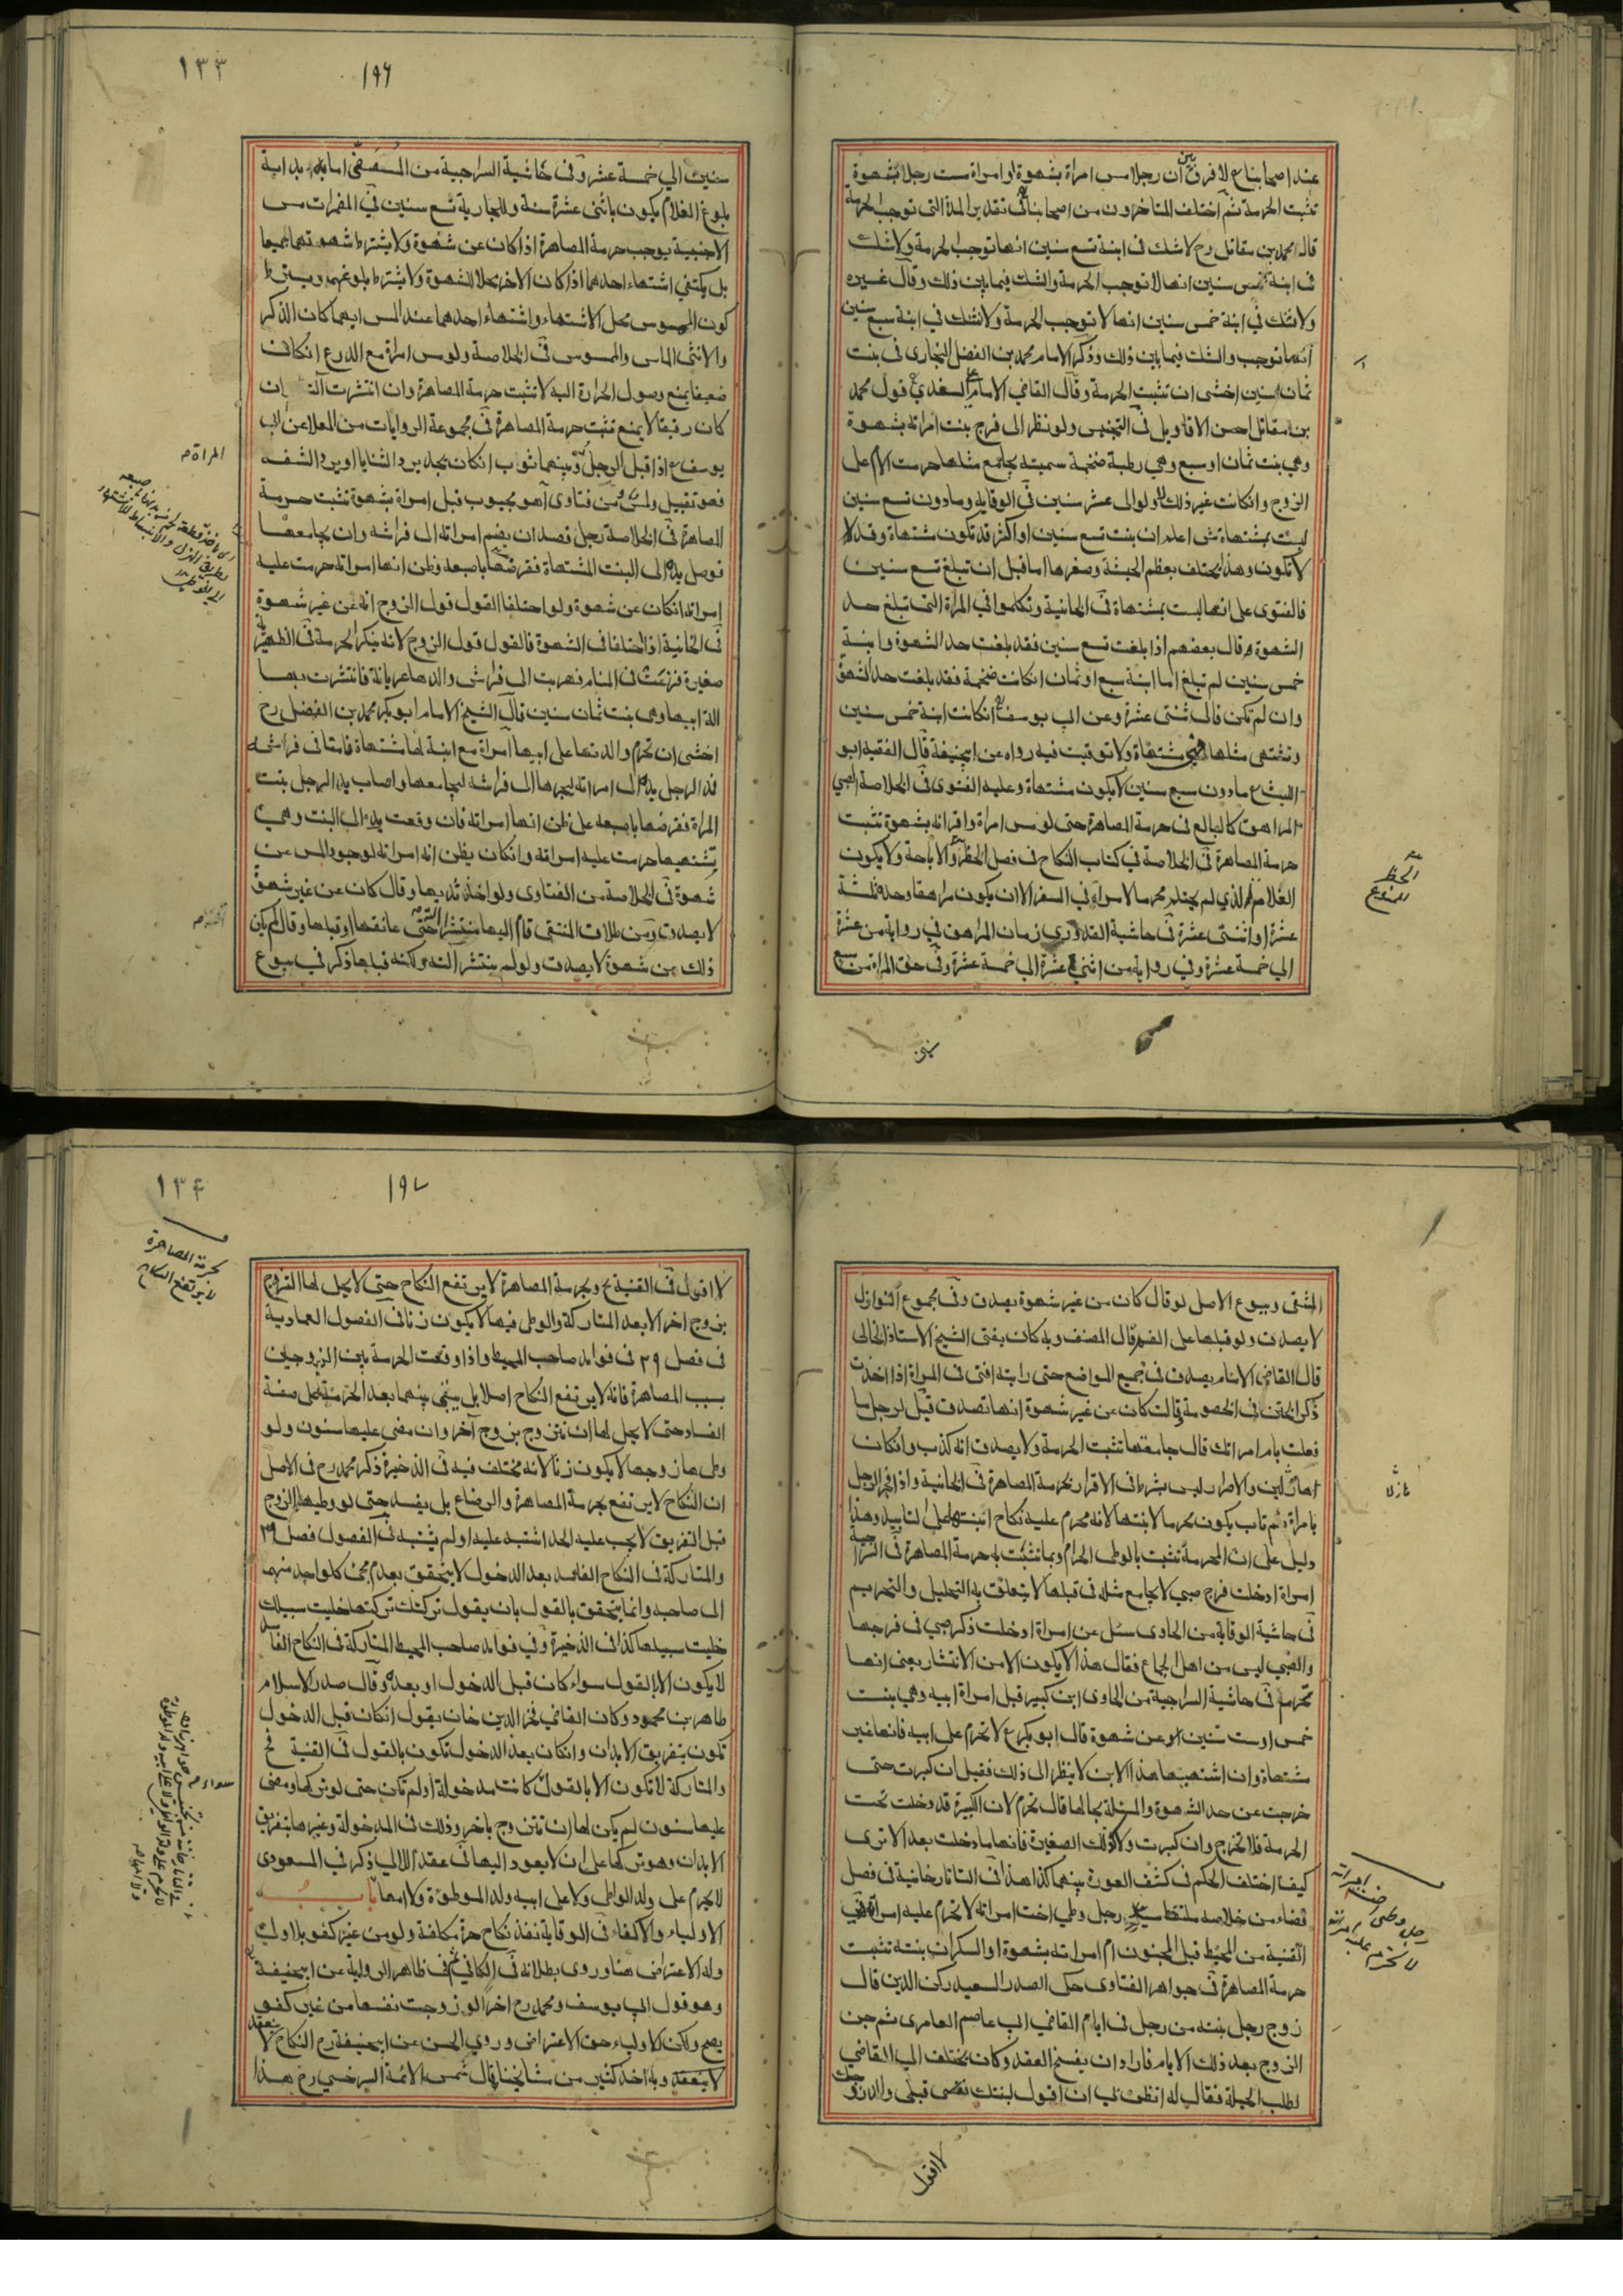 عند اصحابناع لا فرق بين ان رجلا مس امراة بشهوة او امراة مست رجلا بشهوة
تثبت الحرمة ثم اختلف المتاخرون من اصحابنا في تقدير المدة التي توجب الحرمة
قال محمد بن مقاتل رح لا شك في ابنة تسع سنين انها توجب الحرمة ولا شك
في ابنة خمس سنين انها لا توجب الحرمة والشك فيما بين ذلك وقال غيره
ولا شك في ابنة خمس سنين انها لا توجب الحرمة ولا شك في ابنة سبع سنين
انها توجب والشك فيما بين ذلك وذكر الامام محمد بن الفضل البخاري في بنت
ثمان سنين اخشى ان تثبت الحرمة وقال القاضي الامام السغدي قول محمد
بن مقاتل احسن الاقاويل في التجنيس ولو نظر الى فرج بنت امراته بشهوة
وهي بنت ثمان او سبع وهي رطبة ضخمة سمينة يجامع مثلها حرمت الام على
الزوج وان كانت غير ذلك لا ولو الى عشر سنين في الوقاية وما دون تسع سنين
ليست بمشتهاة ش اعلم ان بنت تسع سنين او اكثر قد تكون مشتهاة وقد لا
لا تكون وهذا يختلف بعظم الجثة وصغرها اما قبل ان تبلغ تسع سنين
فالفتوى على انها ليست بمشتهاة في الخانية وتكلموا في المراة التي تبلغ حد
الشهوة قال بعضهم اذا بلغت تسع سنين فقد بلغت حد الشهوة وابنة
خمس سنين لم تبلغ اما ابنة سبع او ثمان ان كانت ضخمة فقد بلغت حد الشهوة
وان لم تكن قال ثنتى عشرة وعن ابي يوسف ان كانت ابنة خمس سنين
وتشتهى مثلها فهي مشتهاة ولا توقيت فيه رواه عن ابيحنيفة قال الفقيه ابو
الليث ع ما دون سبع سنين لا يكون مشتهاة وعليه الفتوى في الخلاصة الصبي
المراهق كالبالغ في حرمة المصاهرة حتى لو مس امراة واقر انه بشهوة تثبت
حرمة المصاهرة في الخلاصة في كتاب النكاح في فصل الحظر والاباحة ولا يكون
الغلام الذي لم يحتلم محرما لامراة في السفر الا ان يكون مراهقا وحده ثلثة
عشرة او اثنتى عشرة في حاشية القدوري زمان المراهق في رواية من عشرة
الي خمسة عشرة وفي رواية من اثنى عشرة الي خمسة عشرة وفي حق المراة من سبع
الحظر
المنع
۱۳۳
۱۹۶
سنين الي خمسة عشر وفي حاشية السراجية من المستصفى اما بداية
بلوغ الغلام يكون باثنى عشرة سنة وللجارية تسع سنين في المضمرات مس
الاجنبية يوجب حرمة المصاهرة اذا كان عن شهوة ولا يشترط شهوتهما جميعا
بل يكتفي اشتهاء احدهما اذا كان الاخر محلا للشهوة ولا يشترط بلوغهما ويشترط
كون الممسوس محل الاشتهاء واشتهاء احدهما عند المس ايهما كان الذكر
والانثى الماس والممسوس في الخلاصة ولو مس امراة مع الدرع ان كان
ضعيفا يمنع وصول الحرارة اليه لا تثبت حرمة المصاهرة وان انتشرت آلته ان
كان رقيقا لا يمنع تثبت حرمة المصاهرة في مجموعة الروايات من المعلا عن ابي
يوسف ع اذا قبل الرجل وبينهما ثوب ان كان يجد برد الثنايا او برد الشفة
فهو تقبيل ولمس من فتاوى آهو مجبوب قبل امراة بشهوة تثبت حرمة
المصاهرة في الخلاصة رجل قصد ان يضم امراته الى فراشه وان يجامعها
فوصل يده الى البنت المشتهاة فقرصها باصبعه وظن انها امراته حرمت عليه
امراته ان كان عن شهوة ولو اختلفا القول قول الزوج انه عن غير شهوة
في الخانية اذا اختلفا في الشهوة فالقول قول الزوج لانه ينكر الحرمة في الظهيرية
صغيرة فزعت في المنام فهربت الى فراش والدها عريانة فانتشرت بها
الة ابيها وهي بنت ثمان سنين قال الشيخ الامام ابو بكر محمد بن الفضل رح
اخشى ان تحرم والدتها على ابيها امراة مع ابنة لها مشتهاة فامتا في فراشه
فمد الرجل يده الى امراته ليجرها الى فراشه ليجامعها واصاب يد الرجل بنت
المراة فقرصها باصبعه على ظن انها امراته فان وقعت يده الى البنت وهي
تشتهيها حرمت عليه امراته وان كان يظن انه امراته لوجود المس عن
شهوة في الخلاصة من الفتاوى ولو اخذ ثديها وقال كان عن غير شهوة
لا يصدق ومن طلاق المنتقى قام اليها منتشرا حتى عانقها او قبلها وقال لم يكن
ذلك من شهوة لا يصدق ولو لم ينتشر الته ولكنه قبلها ذكر في بيوع
المراة ص
المنتقى وبيوع الاصل لو قال كان من غير شهوة يصدق وفي مجموع النوازل
لا يصدق ولو قبلها على الفم قال المصنف وبه كان يفتى الشيخ الاستاذ الخالى
قال القاضي الامام يصدق في جميع المواضع حتى رايته افتى في المراة اذا اخذت
ذكر الختن في الخصومة قالت كان عن غير شهوة انها تصدق قيل لرجل ما
فعلت بام امراتك قال جامعتها تثبت الحرمة ولا يصدق انه كذب وان كان
هازلين والاصرار ليس بشرط في الاقرار بحرمة المصاهرة في الخانية واذا فجر الرجل
بامراة ثم تاب يكون محرما لابنتها لانه محرم عليه نكاح ابنتها على التابيد وهذا
دليل على ان المحرمة تثبت بالوطى الحرام وبما تثبت به حرمة المصاهرة في السراجية
امراة ادخلت فرج صبي لا يجامع مثله في قبلها لا يتعلق به التحليل والتحريم
في حاشية الوقاية من الحاوى سئل عن امراة ادخلت ذكر صبي في فرجها
والصبي ليس من اهل الجماع فقال هذا لا يكون الا من الانتشار يعنى انها
تحرم في حاشية السراجية من الحاوى ابن كبير قبل امراة ابيه وهي بنت
خمس او ست سنين او عن شهوة قال ابو بكر ع لا تحرم على ابيه فانها غير
مشتهاة وان اشتهيتها هذا الابن لا ينظر الى ذلك فقيل ان كبرت حتى
خرجت عن حد الشهوة والمسئلة بحالها قال تحرم لان الكبيرة قد دخلت تحت
الحرمة فلا تخرج وان كبرت ولا كذلك الصغيرة فانها ما دخلت بعد الا ترى
كيف اختلف الحكم في كشف العورة بينهما كذا هذا في التاتارخانية في فصل
قضاء من خلاصه ملتقط رجل وطي اخت امراته لا تحرم عليه امراته في
القنية من المحيط قبل المجنون ام امراته بشهوة او السكران بنته تثبت
حرمة المصاهرة في جواهر الفتاوى حكى الصدر السعيد ركن الدين قال
زوج رجل بنته من رجل في ايام القاضي ابي عاصم العامرى ثم جن
الزوج بعد ذلك الايام فاراد ان يفسخ العقد وكان يختلف الي القاضي
لطلب الحيلة فقال له اتظن بي ان اقول لبنتك تقصى قبلى والد زوجك
لا اقول
رجل وطى اخت امراته
لا تحرم عليه امراته
۱۳۴
۱۹۷
بحرمة المصاهرة
لا يرتفع النكاح
لا اقول في القنية ع وبحرمة المصاهرة لا يرتفع النكاح حتى لا يحل لها التزوج
بزوج اخر الا بعد المتاركة والوطى فيها لا يكون زنا في الفصول العمادية
في فصل ۳۹ في فوائد صاحب المحيط واذا وقعت الحرمة بين الزوجين
بسبب المصاهرة فانه لا يرتفع النكاح اصلا بل يبقى بينهما بعد الحرمة على صفة
الفساد حتى لا يحل لها ان تتزوج بزوج آخر وان مضى عليها سنون ولو
وطى ها زوجها لا يكون زنا لانه مختلف فيه في الذخيرة ذكر محمد رح في الاصل
ان النكاح لا يرتفع بحرمة المصاهرة والرضاع بل يفسد حتى لو وطيها الزوج
قبل التفريق لا يجب عليه الحد اشتبه عليه او لم يشتبه في الفصول فصل ۳۹
والمتاركة في النكاح الفاسد بعد الدخول لا يتحقق بعدم مجئ كل واحد منهما
الى صاحبه وانما يتحقق بالقول بان يقول تركتك تركتها خليت سبيلك
خليت سبيلها كذا في الذخيرة وفي فوائد صاحب المحيط المتاركة في النكاح الفاسد
لا يكون الا بالقول سواء كان قبل الدخول او بعده وقال صدر الاسلام
طاهر بن محمود وكان القاضي فخر الدين خان يقول ان كان قبل الدخول
تكون بتفريق الابدان وان كان بعد الدخول تكون بالقول في القنية فخ
والمتاركة لا تكون الا بالقول كانت مدخولة او لم تكن حتى لو تركها ومضى
عليها سنون لم يكن لها ان تتزوج باخر وذلك في المدخولة وغيرها بتفريق
الابدان وهو تركها على ان لا يعود اليها في عقد اللالي ذكر في المسعودى
لا يحرم على ولد الواطى ولا على ابيه ولد الموطؤة ولا امها باب
الاولياء والاكفاء في الوقاية نفذ نكاح حرة مكلفة ولو من غير كفو بلا ولي
وله الاعتراض هنا وروى بطلانه في الكافي ثم في ظاهر الرواية عن ابيحنيفة
وهو قول ابي يوسف ومحمد رح اخرا لو زوجت نفسها من غير كفو
يصح ولكن للاولياء حق الاعتراض وروي الحسن عن ابيحنيفة رح النكاح لا ينعقد
لا ينعقد وبه اخذ كثير من مشائخنا قال شمس الائمة السرخسي رح هذا
سواء